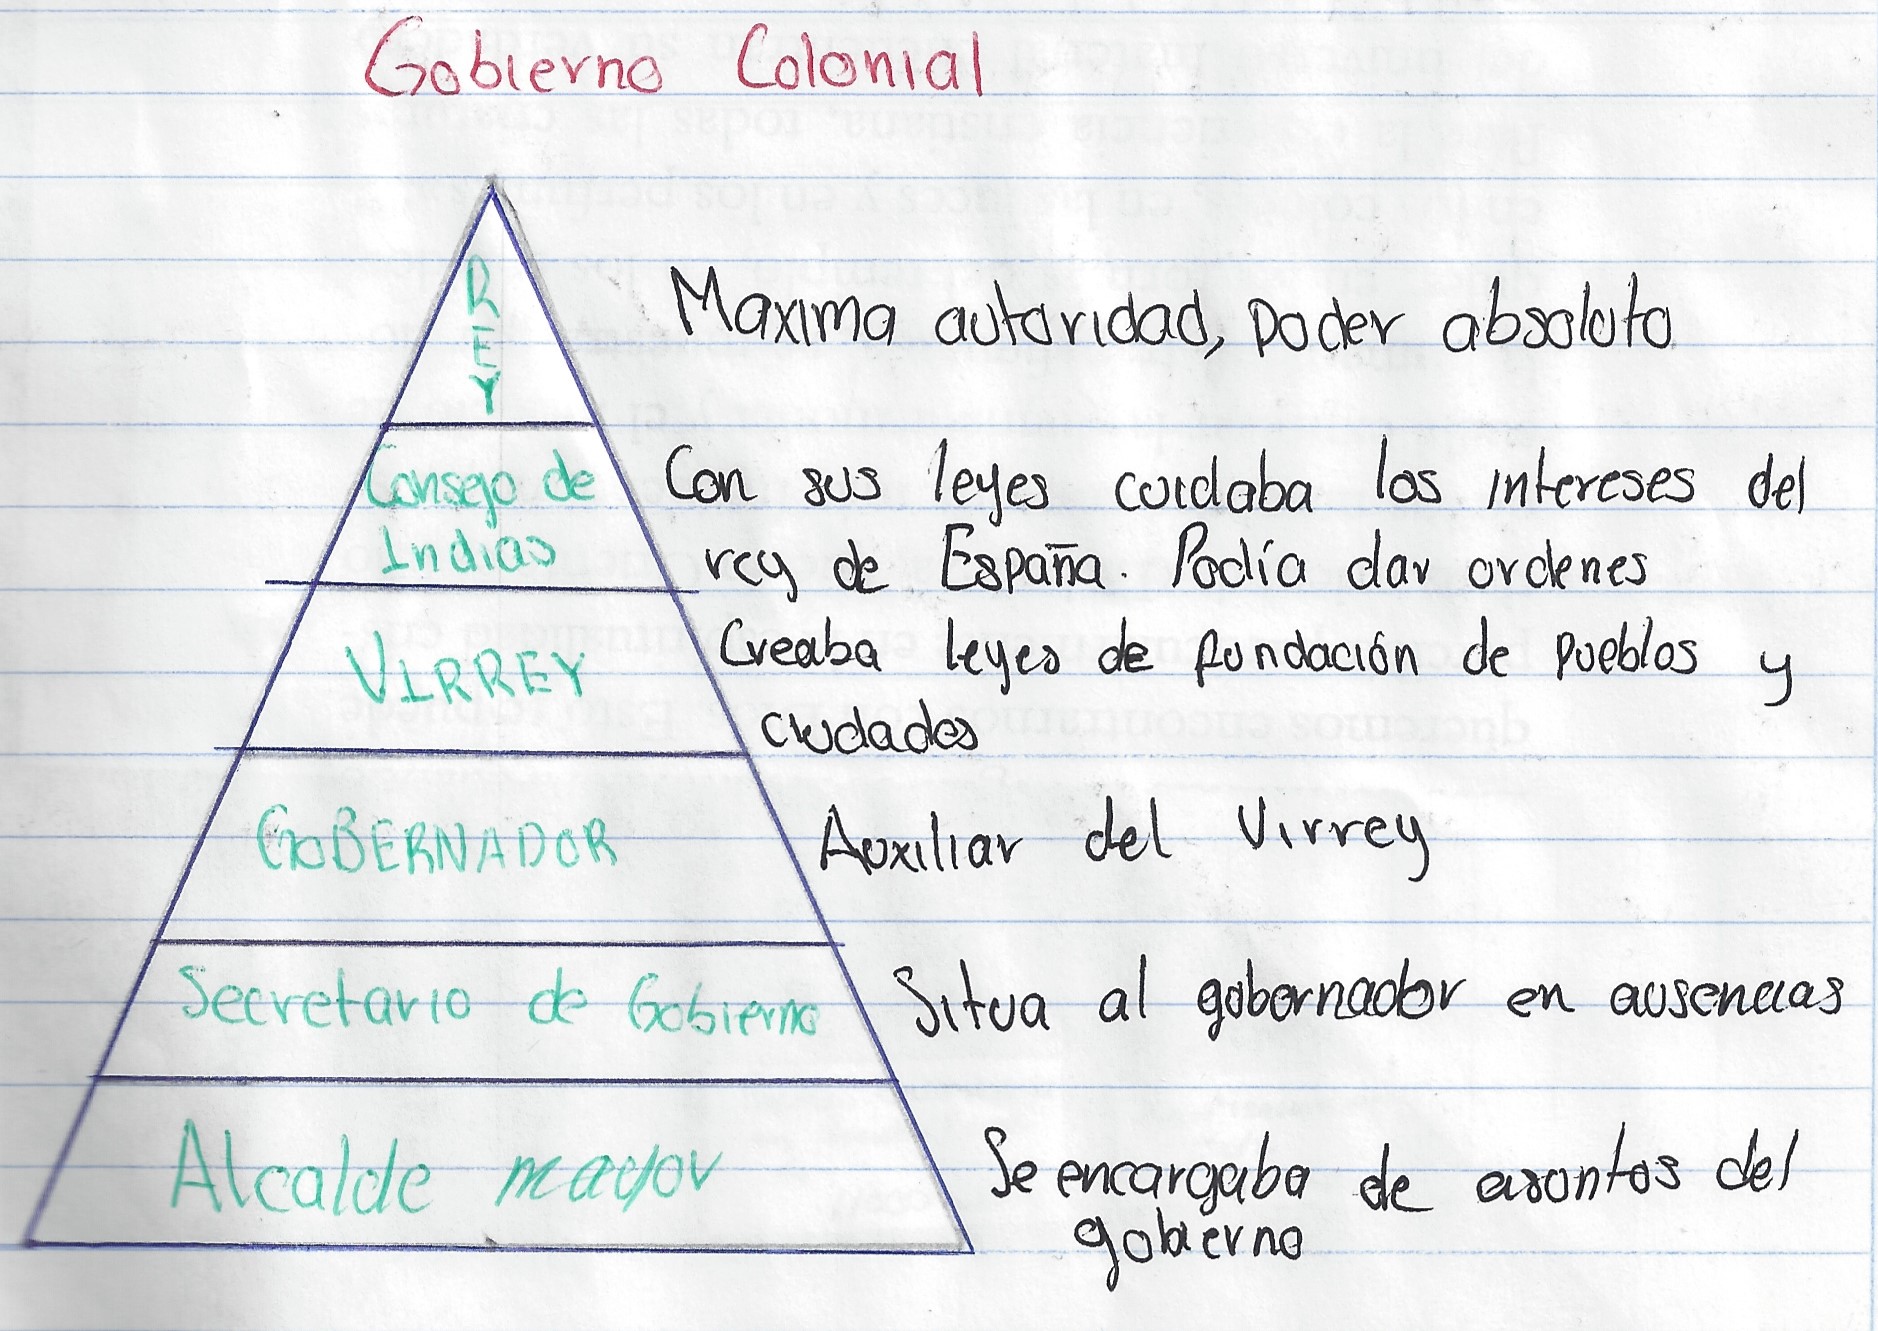 Gobierno Colonial
REY
Maxima autoridad, poder absoluto
Consejo de
Indias
Con sus leyes cuidaba los intereses del
rey de España. Podía dar ordenes
VIRREY
Creaba leyes de fundación de pueblos y
ciudades
GOBERNADOR
Auxiliar del Virrey
Secretario de Gobierno
Situa al gobernador en ausencias
Alcalde mayor
Se encargaba de asontos del
gobierno